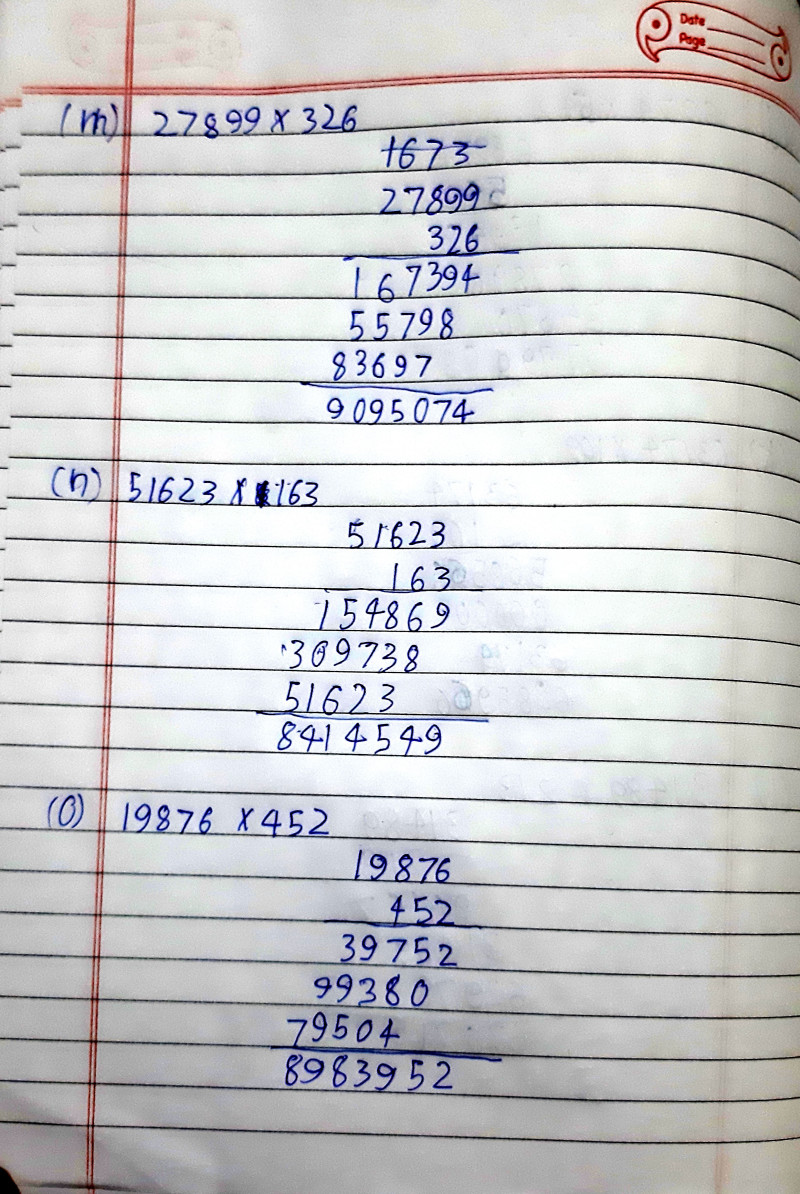 Date
Page
(m) 27899 x 326
1673
27899
326
167394
55798
83697
9095074
(n) 51623 x 163
51623
163
154869
309738
51623
8414549
(O) 19876 x 452
19876
452
39752
99380
79504
8983952